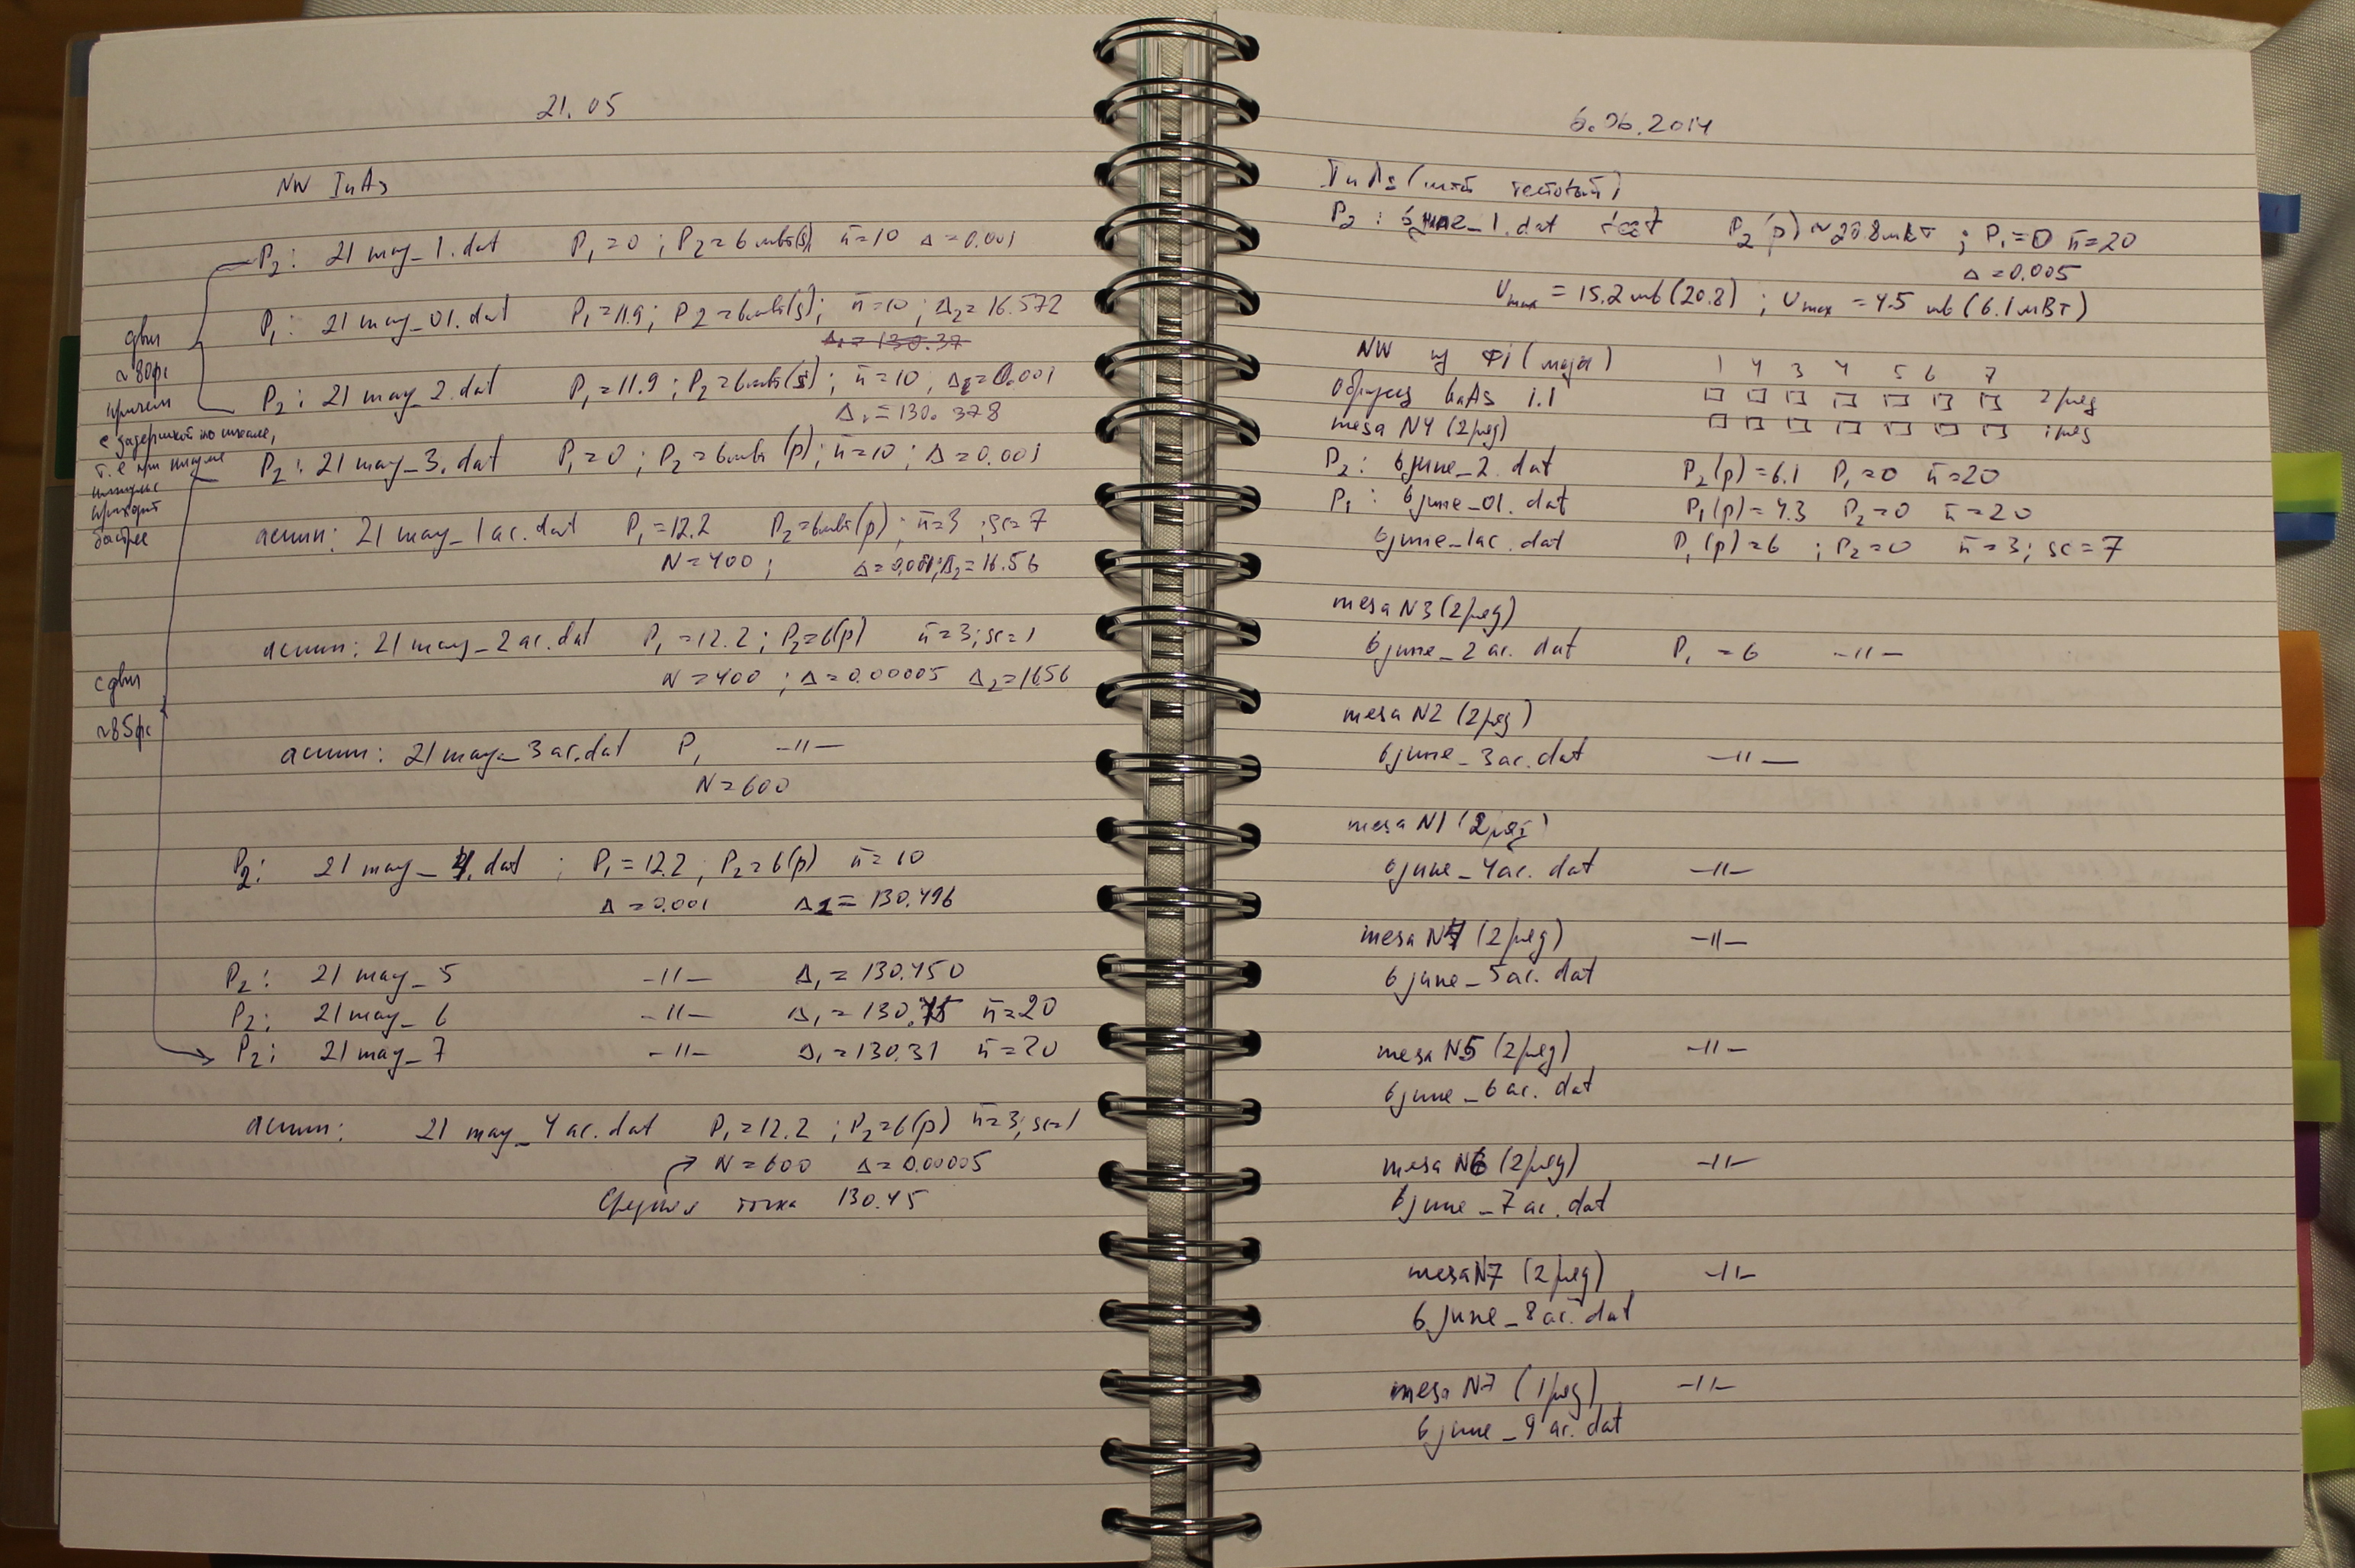 21.05
NW InAs
P₂: 21 may_1.dat P₁=0; P₂=6мВт(s) n̄=10 Δ=0.001
P₁: 21 may_01.dat P₁=11.9; P₂=6мВт(s); n̄=10; Δ₂=16.572
Δ₁=130.37
P₂: 21 may_2.dat P₁=11.9; P₂=6мВт(s); n̄=10; Δ₂=0.001
Δ₁=130.378
P₂: 21 may_3.dat P₁=0; P₂=6мВт(p); n̄=10; Δ=0.001
сдвиг
~80ps
причем
с задержкой по шкале,
т.е при
импульс
приходит
быстрее
асимм: 21 may_1ac.dat P₁=12.2 P₂=6мВт(p); n̄=3; sc=7
N=400; Δ=0,001; Δ₂=16.56
асимм: 21 may_2ac.dat P₁=12.2; P₂=6(p) n̄=3; sc=1
N=400; Δ=0.00005 Δ₂=16.56
сдвиг
~85ps
асимм: 21 may_3ac.dat P₁ -||-
N=600
P₂: 21 may_4.dat; P₁=12.2; P₂=6(p) n̄=10
Δ=0.001 Δ1=130.496
P₂: 21 may_5 -||- Δ₁=130.450
P₂: 21 may_6 -||- Δ₁=130.75 n̄=20
P₂: 21 may_7 -||- Δ₁=130.31 n̄=20
асимм: 21 may_4ac.dat P₁=12.2; P₂=6(p) n̄=3; sc=1
N=600 Δ=0.00005
Средняя точка 130.45
6.06.2014
InAs (тестовый)
P₂: 6june_1.dat test P₂(p)~20.8мВт; P₁=0 n̄=20
Δ=0.005
Umax=15.2 mV(20.8); Umax=4.5 mV(6.1мВт)
NW
1 4 3 4 5 6 7
образец GaAs 1.1 2 ряд
mesa N4 (2 ряд) 1 ряд
P₂: 6june_2.dat P₂(p)=6.1 P₁=0 n̄=20
P₁: 6june_01.dat P₁(p)=4.3 P₂=0 n̄=20
6june_1ac.dat P₁(p)=6; P₂=0 n̄=3; sc=7
mesa N3 (2 ряд)
6june_2ac.dat P₁=6 -||-
mesa N2 (2 ряд)
6june_3ac.dat -||-
mesa N1 (2 ряд)
6june_4ac.dat -||-
mesa N4 (2 ряд) -||-
6june_5ac.dat
mesa N5 (2 ряд) -||-
6june_6ac.dat
mesa N6 (2 ряд) -||-
6june_7ac.dat
mesa N7 (2 ряд) -||-
6june_8ac.dat
mesa N7 (1 ряд) -||-
6june_9ac.dat